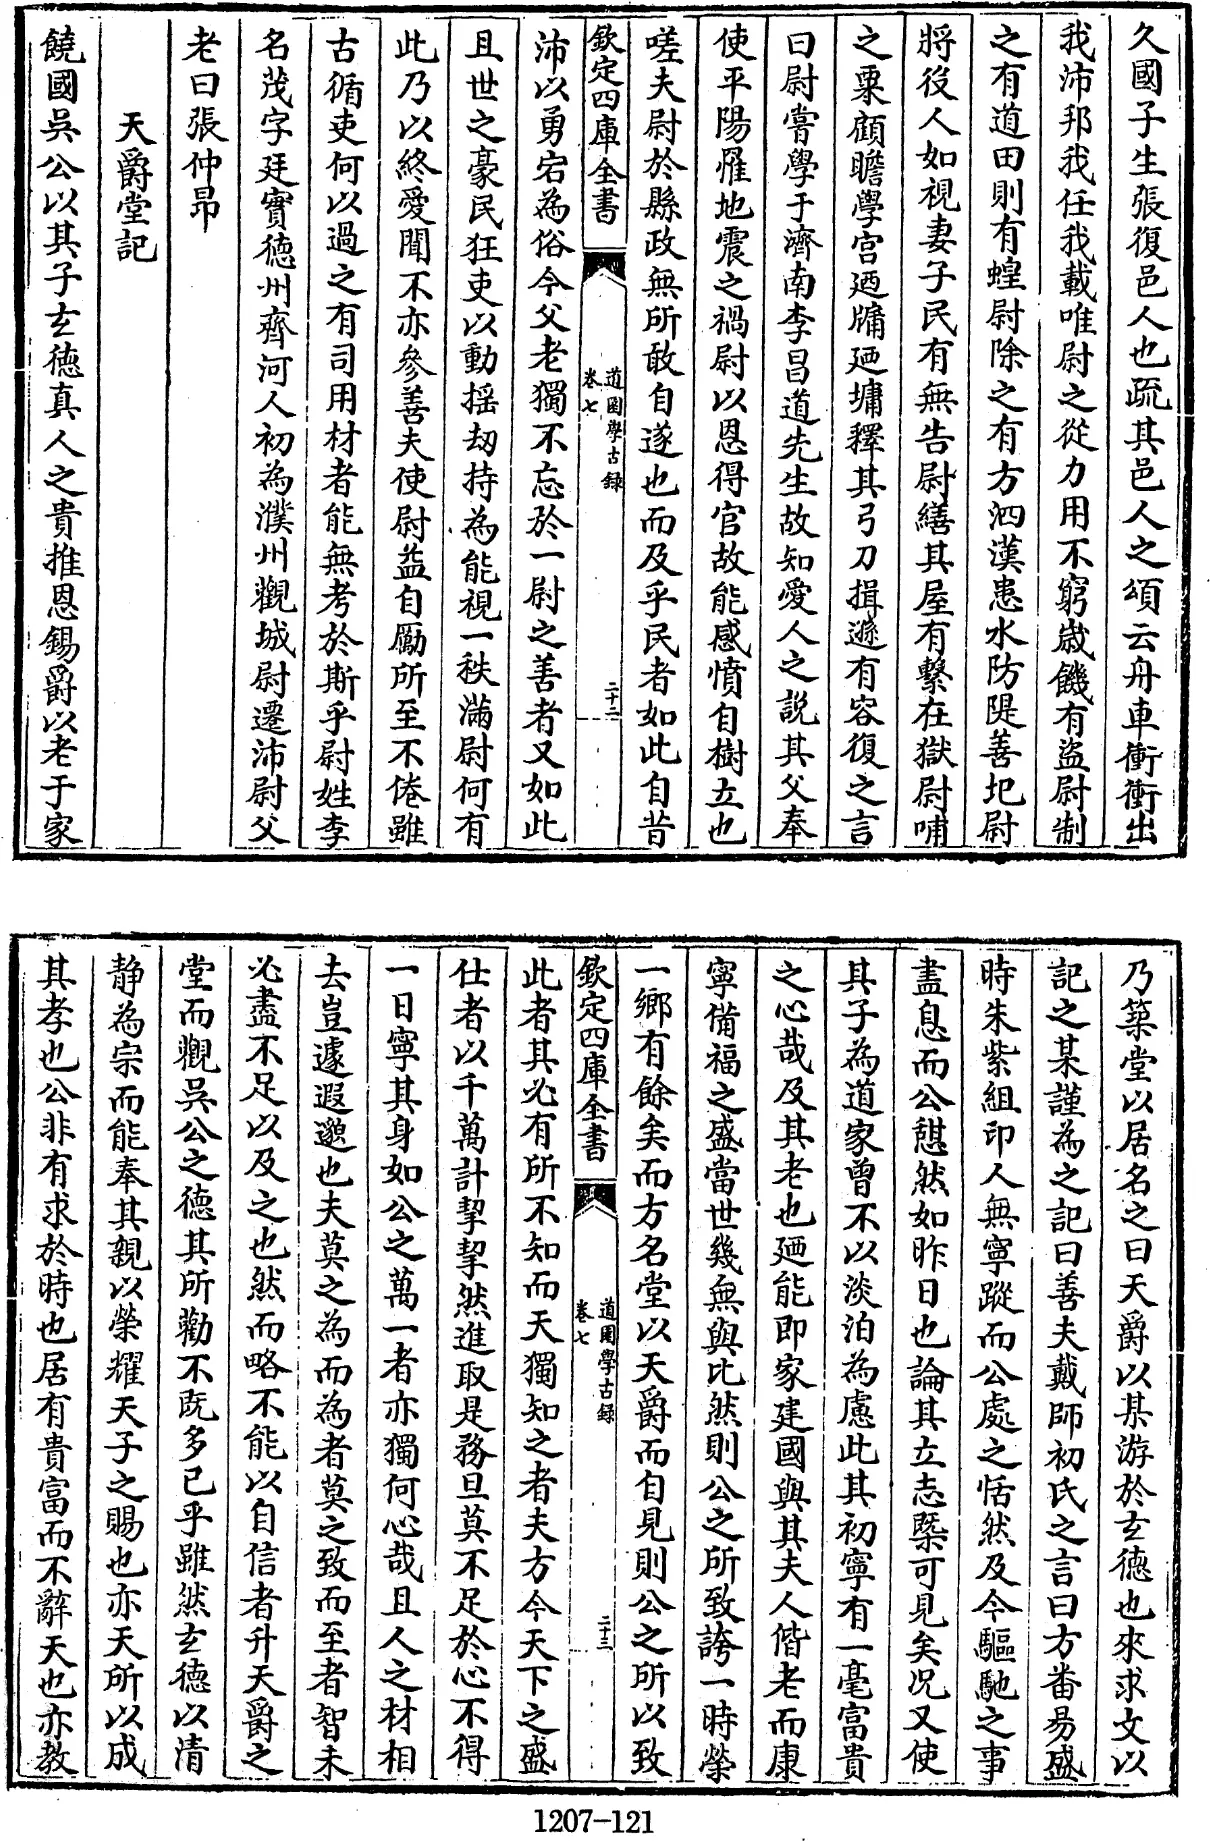 久國子生張復邑人也疏其邑人之頌云舟車衝衝出
我沛邦我任我載唯尉之從力用不窮歳饑有盜尉制
之有道田則有蝗尉除之有方泗漢患水防隄善圯尉
將役人如視妻子民有無告尉繕其屋有繫在獄尉哺
之粟顧瞻學宫廼牖廼墉釋其弓刀揖遜有容復之言
曰尉嘗學于濟南李昌道先生故知愛人之說其父奉
使平陽罹地震之禍尉以恩得官故能感憤自樹立也
嗟夫尉於縣政無所敢自遂也而及乎民者如此自昔
欽定四庫全書
道園學古録
卷七
二十二
沛以勇宕為俗今父老獨不忘於一尉之善者又如此
且世之豪民狂吏以動揺刼持為能視一秩滿尉何有
此乃以終愛聞不亦參善夫使尉益自勵所至不倦雖
古循吏何以過之有司用材者能無考於斯乎尉姓李
名茂字廷實德州齊河人初為濮州觀城尉遷沛尉父
老曰張仲昻
天爵堂記
饒國吳公以其子玄德真人之貴推恩錫爵以老于家
乃築堂以居名之曰天爵以某游於玄德也來求文以
記之某謹為之記曰善夫戴師初氏之言曰方番易盛
時朱紫組印人無寧蹤而公處之恬然及今驅馳之事
盡息而公憇然如昨日也論其立志槩可見矣况又使
其子為道家曾不以淡泊為慮此其初寧有一毫富貴
之心哉及其老也廼能即家建國與其夫人偕老而康
寧備福之盛當世幾無與比然則公之所致誇一時榮
一鄉有餘矣而方名堂以天爵而自見則公之所以致
欽定四庫全書
道園學古録
卷七
二十三
此者其必有所不知而天獨知之者夫方今天下之盛
仕者以千萬計挈挈然進取是務旦莫不足於心不得
一日寧其身如公之萬一者亦獨何心哉且人之材相
去豈遽遐邈也夫莫之為而為者莫之致而至者智未
必盡不足以及之也然而略不能以自信者升天爵之
堂而觀吳公之德其所勸不既多已乎雖然玄德以清
静為宗而能奉其親以榮耀天子之賜也亦天所以成
其孝也公非有求於時也居有貴富而不辭天也亦教
1207-121